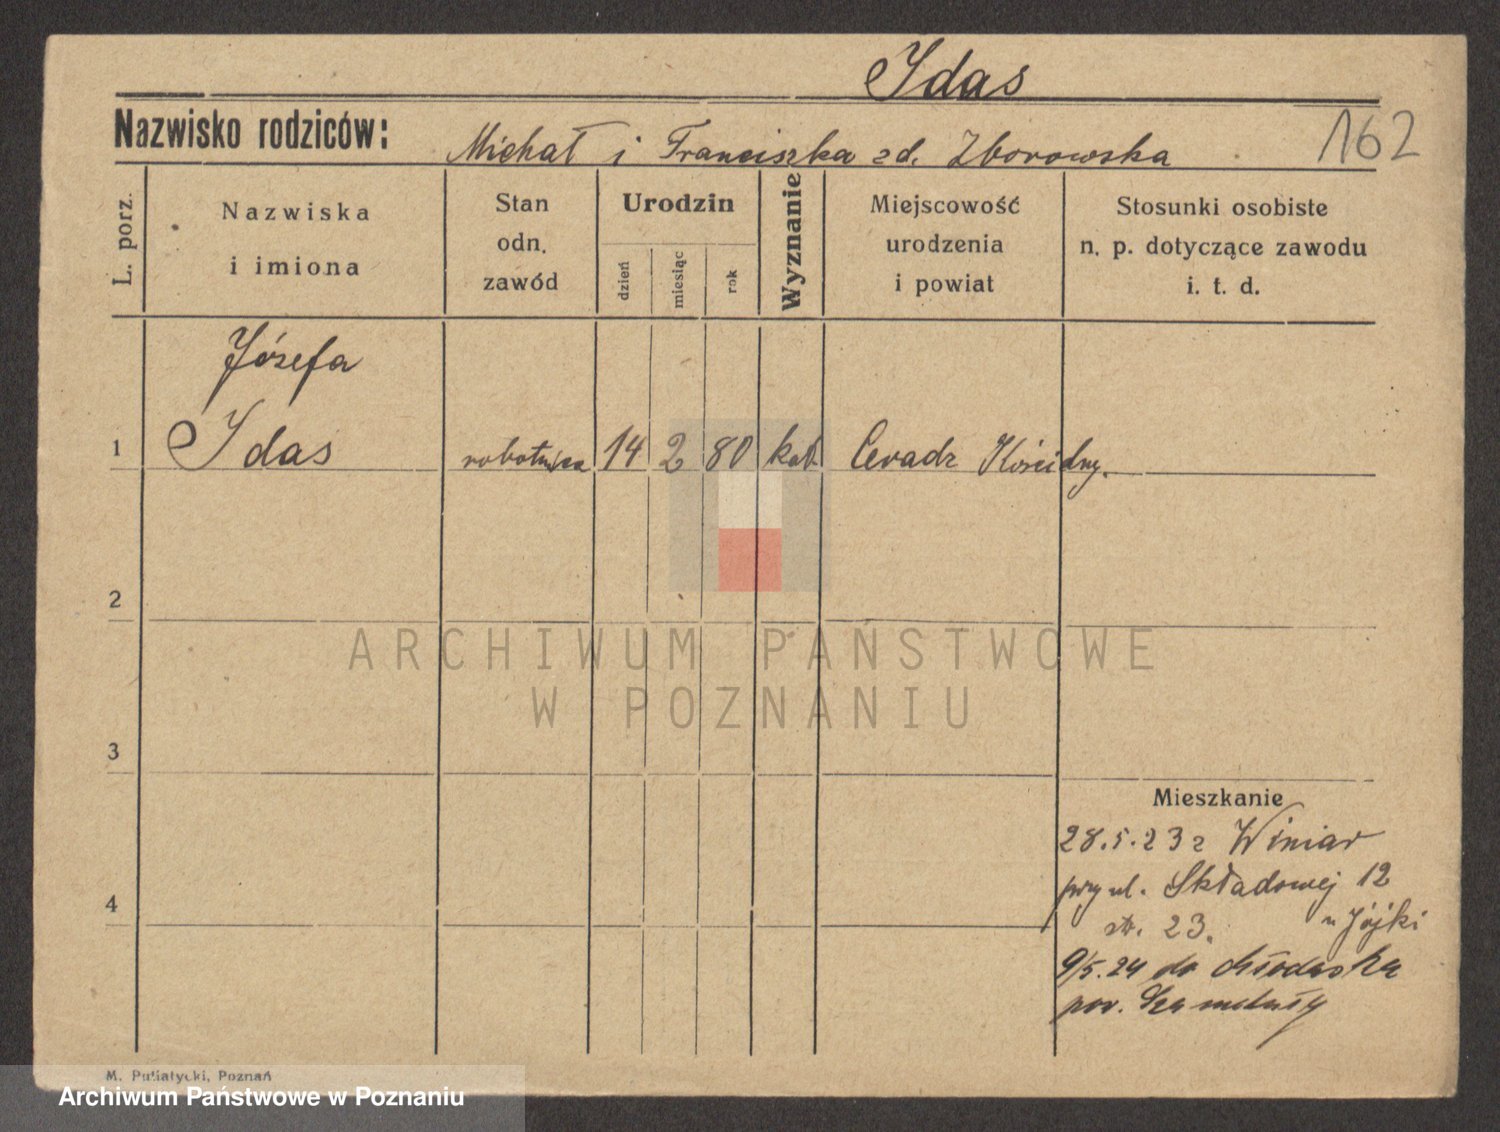 Idas
Nazwisko rodziców: Michał i Franciszka zd. Zborowska 162
L. porz.
Nazwiska i imiona
Stan odn. zawód
Urodzin
dzień miesiąc rok
Wyznanie
Miejscowość urodzenia i powiat
Stosunki osobiste n. p. dotyczące zawodu i. t. d.
Józefa
1 Idas robotnica 14 2 80 kat. Ceradz Kościelny.
2
3
4
Mieszkanie
28.5.23 z Winiar
przy ul. Składowej 12
str. 23. u Jójki
9/5.24 do
pow. Szamotuły
M. Putiatycki, Poznań
ARCHIWUM PAŃSTWOWE
W POZNANIU
Archiwum Państwowe w Poznaniu